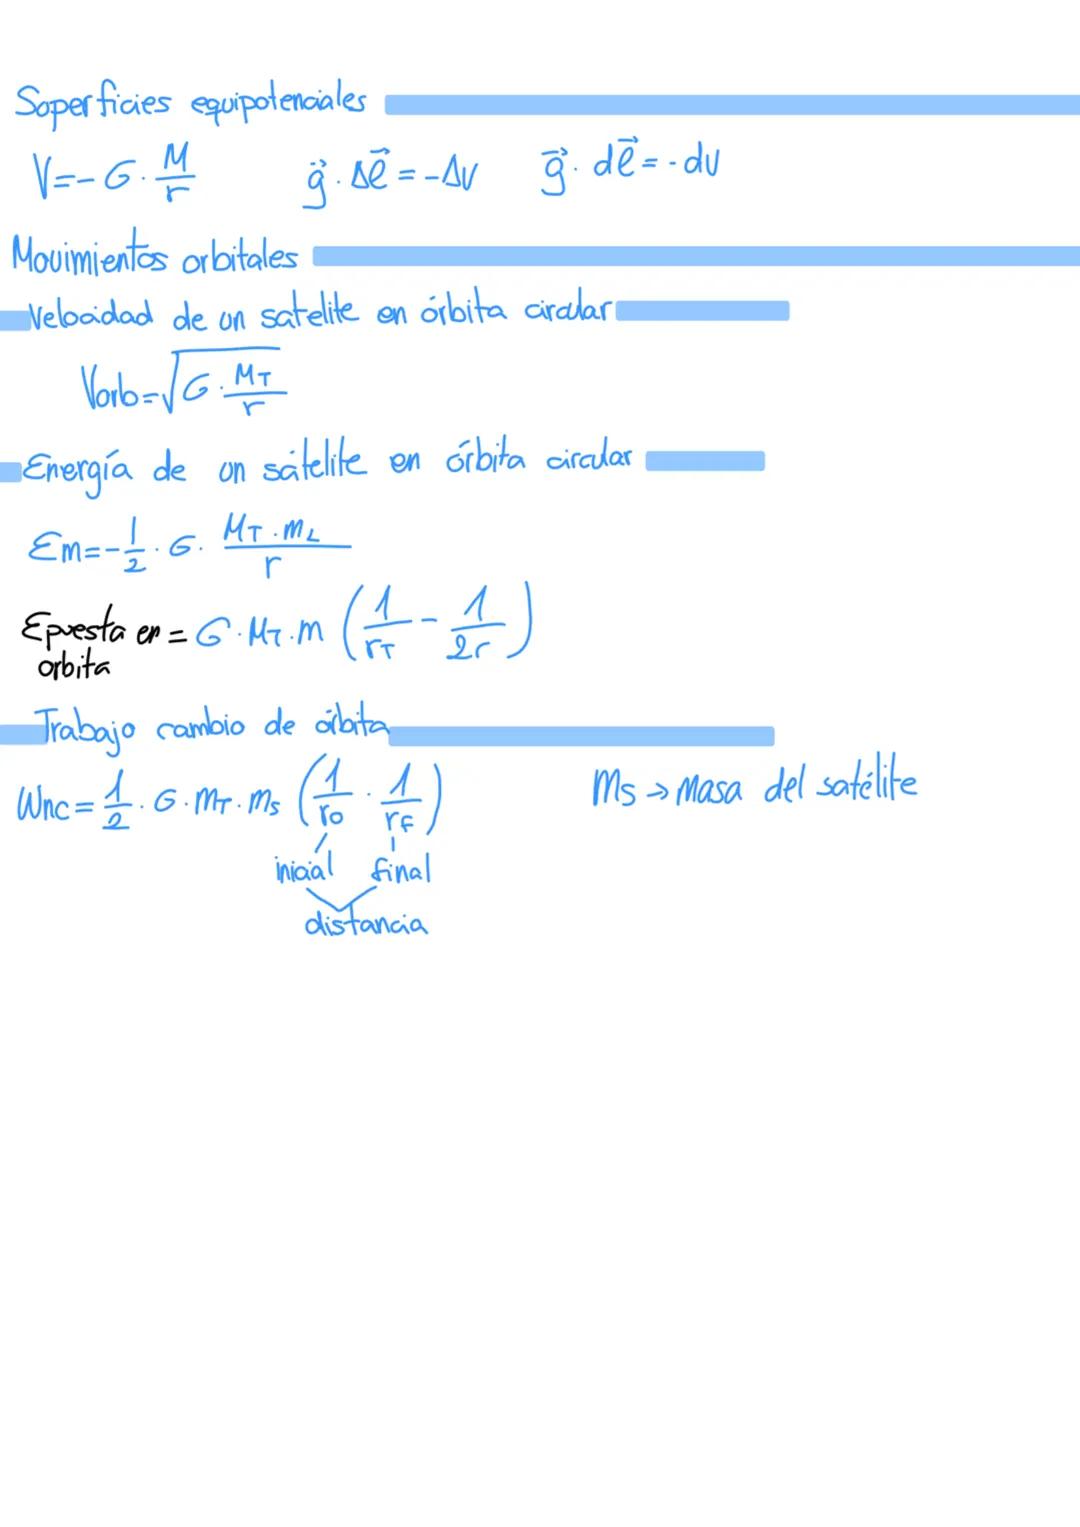 Soperficies equipotenciales
V=-G·M/r  g⃗·Δl⃗=-ΔV  g⃗·dl⃗=-dv
Movimientos orbitales
Velocidad de un satelite en órbita circular
Vorb=√G·MT/r
Energía de un sátelite en órbita circular
Em=-1/2·G·MT·mL/r
Epuesta en = G·MT·m (1/rT - 1/2r)
orbita
Trabajo cambio de órbita
Wnc=1/2·G·MT·ms (1/ro · 1/rF)  Ms → masa del satélite
inicial final
distancia